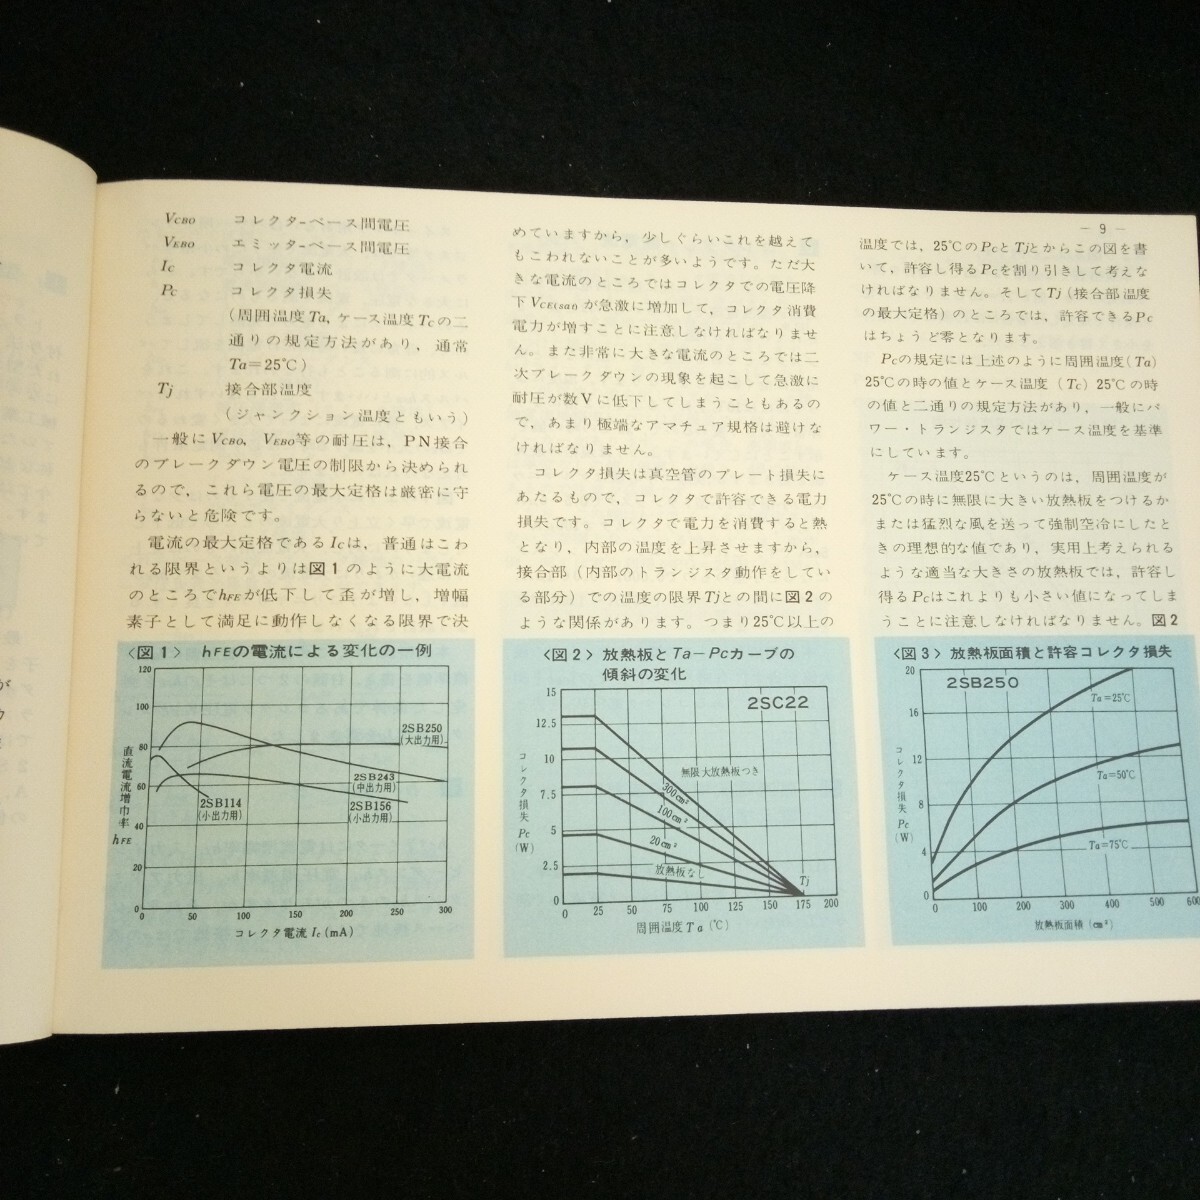 － 9 －
VCBO コレクタ-ベース間電圧
VEBO エミッタ-ベース間電圧
Ic コレクタ電流
Pc コレクタ損失
(周囲温度Ta, ケース温度Tcの二
通りの規定方法があり, 通常
Ta＝25℃)
Tj 接合部温度
(ジャンクション温度ともいう)
一般にVCBO, VEBO等の耐圧は, PN接合
のブレークダウン電圧の制限から決められ
るので, これら電圧の最大定格は厳密に守
らないと危険です。
電流の最大定格であるIcは, 普通はこわ
れる限界というよりは図1のように大電流
のところでhFEが低下して歪が増し, 増幅
素子として満足に動作しなくなる限界で決
めていますから, 少しぐらいこれを越えて
もこわれないことが多いようです。ただ大
きな電流のところではコレクタでの電圧降
下VCE(sat)が急激に増加して, コレクタ消費
電力が増すことに注意しなければなりませ
ん。また非常に大きな電流のところでは二
次ブレークダウンの現象を起こして急激に
耐圧が数Vに低下してしまうこともあるの
で, あまり極端なアマチュア規格は避けな
ければなりません。
コレクタ損失は真空管のプレート損失に
あたるもので, コレクタで許容できる電力
損失です。コレクタで電力を消費すると熱
となり, 内部の温度を上昇させますから,
接合部(内部のトランジスタ動作をしてい
る部分)での温度の限界Tjとの間に図2の
ような関係があります。つまり25℃以上の
温度では, 25℃のPcとTjとからこの図を書
いて, 許容し得るPcを割り引きして考えな
ければなりません。そしてTj(接合部温度
の最大定格)のところでは, 許容できるPc
はちょうど零となります。
Pcの規定には上述のように周囲温度(Ta)
25℃の時の値とケース温度(Tc)25℃の時
の値と二通りの規定方法があり, 一般にパ
ワー・トランジスタではケース温度を基準
にしています。
ケース温度25℃というのは, 周囲温度が
25℃の時に無限に大きい放熱板をつけるか
または猛烈な風を送って強制空冷にしたと
きの理想的な値であり, 実用上考えられる
ような適当な大きさの放熱板では, 許容し
得るPcはこれよりも小さい値になってしま
うことに注意しなければなりません。図2
〈図1〉 hFEの電流による変化の一例
120
100
80
60
40
20
0
直流電流増巾率
hFE
2SB250
(大出力用)
2SB243
(中出力用)
2SB114
(小出力用)
2SB156
(小出力用)
0 50 100 150 200 250 300
コレクタ電流 Ic (mA)
〈図2〉 放熱板とTa－Pcカーブの
傾斜の変化
15
12.5
10
7.5
5
2.5
0
コレクタ損失
Pc
(W)
2SC22
無限大放熱板つき
300cm²
100cm²
20cm²
放熱板なし
Tj
0 25 50 75 100 125 150 175 200
周囲温度Ta (℃)
〈図3〉 放熱板面積と許容コレクタ損失
20
16
12
8
4
0
コレクタ損失
Pc
(W)
2SB250
Ta＝25℃
Ta＝50℃
Ta＝75℃
0 100 200 300 400 500 600
放熱板面積(cm²)